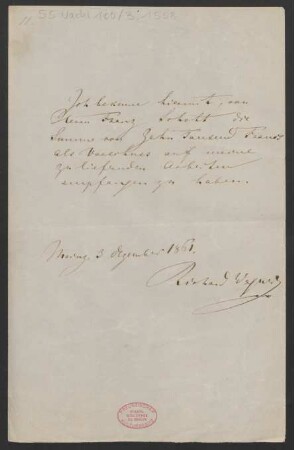 Ich bekenne hiermit, von
Herrn Franz Schott die
Summe von Zehn Tausend Francs
als Vorschuss auf meine
zu liefernden Arbeiten
empfangen zu haben.
Mainz 3 Dezember 1861.
Richard Wagner